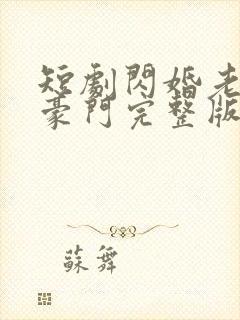 短劇閃婚老
豪門完整版
蘇舞